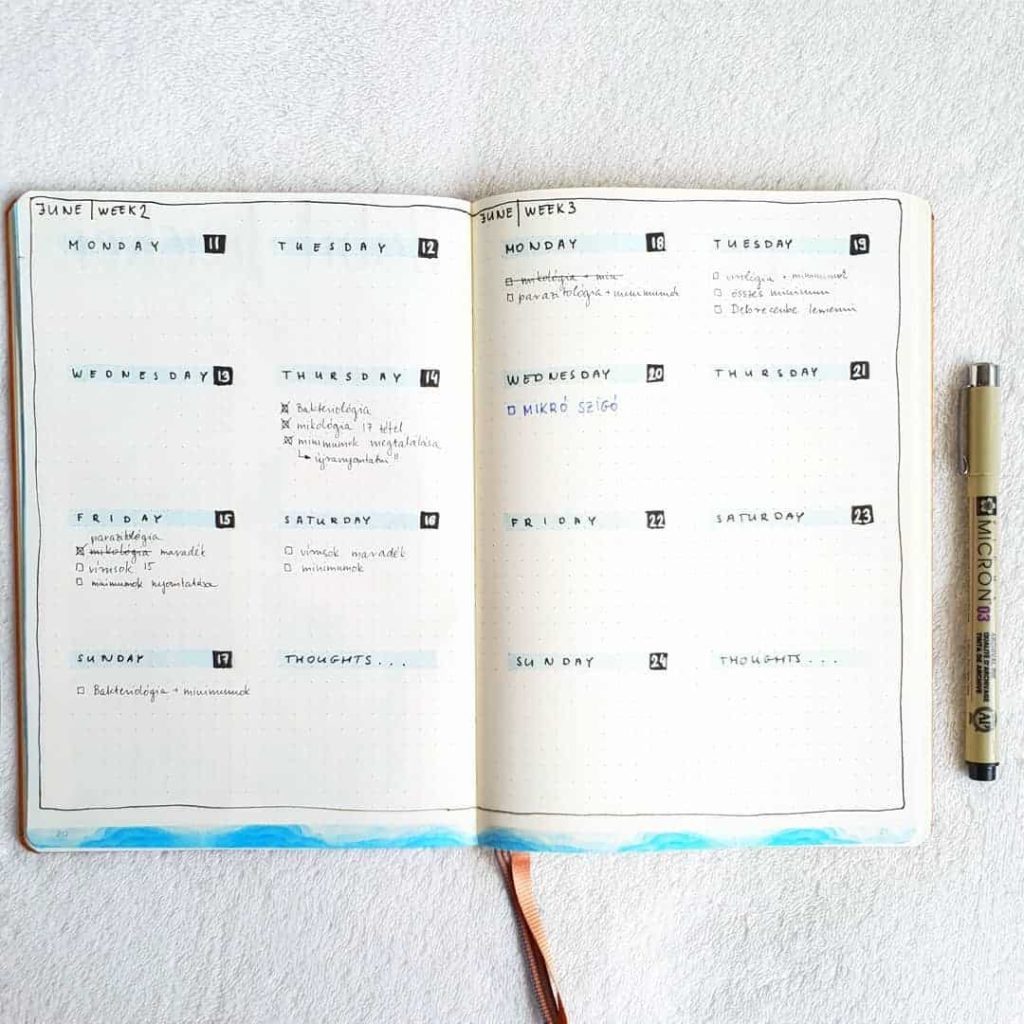 JUNE | WEEK 2
MONDAY 11
TUESDAY 12
WEDNESDAY 13
THURSDAY 14
Bakteriológia
mikológia 17 tétel
minimumok megtalálása
újranyomtatni !!
FRIDAY 15
parazitológia
mikológia maradék
vírusok 15
minimumok nyomtatása
SATURDAY 16
vírusok maradék
minimumok
SUNDAY 17
Bakteriológia + minimumok
THOUGHTS...
20
JUNE | WEEK 3
MONDAY 18
mikológia + min
parazitológia + minimumok
TUESDAY 19
virológia + minimumok
összes minimum
Debrecenbe lemenni
WEDNESDAY 20
MIKRÓ SZIGÓ
THURSDAY 21
FRIDAY 22
SATURDAY 23
SUNDAY 24
THOUGHTS...
21
MICRON 03
QUALITÉ D'ARCHIVAGE
TINTA DE ARCHIVO
AP